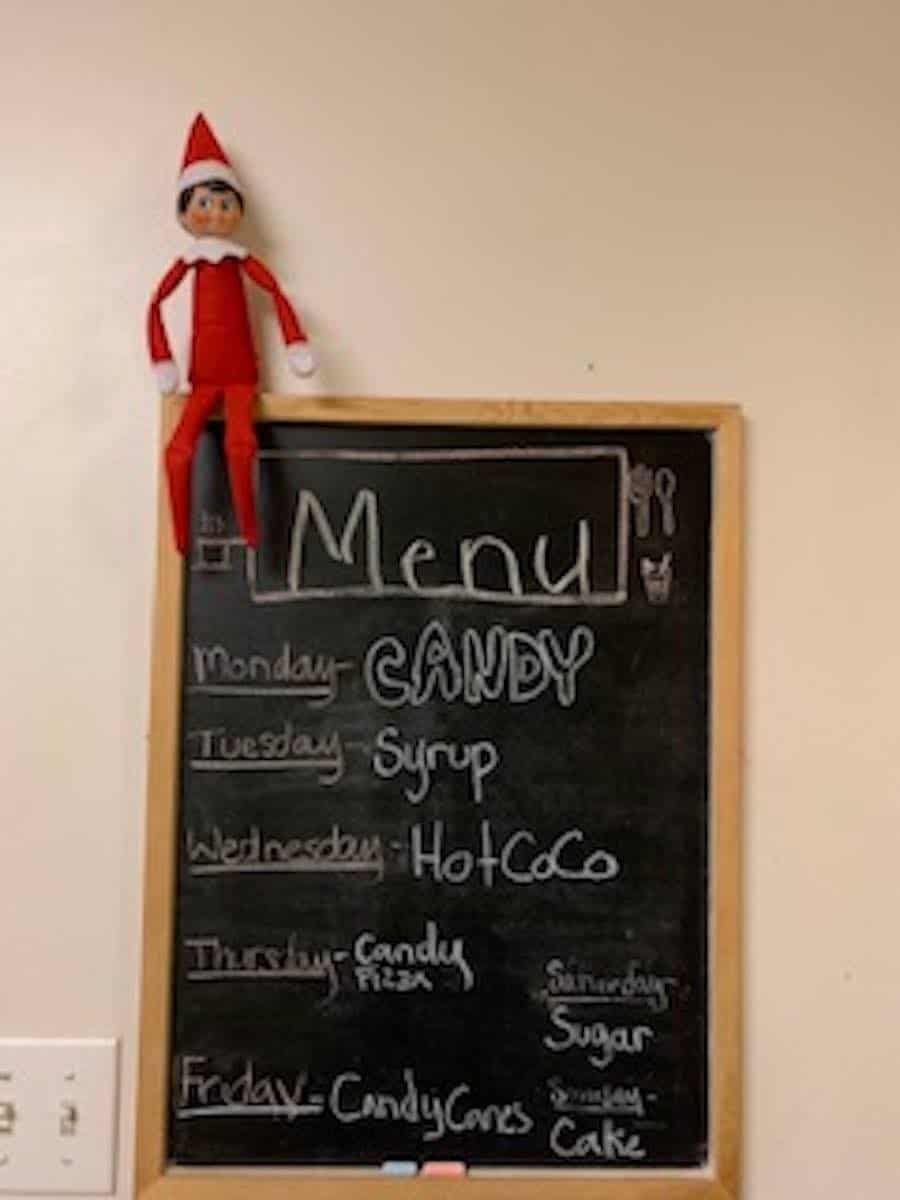 Menu
Monday- CANDY
Tuesday- Syrup
Wednesday- HotCoCo
Thursday- Candy
Pizza
Saturday-
Sugar
Friday- CandyCanes
Sunday-
Cake